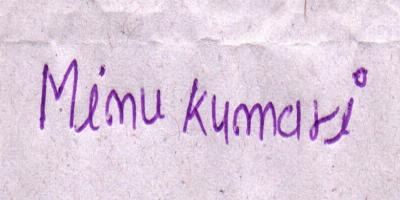 Minu kumari